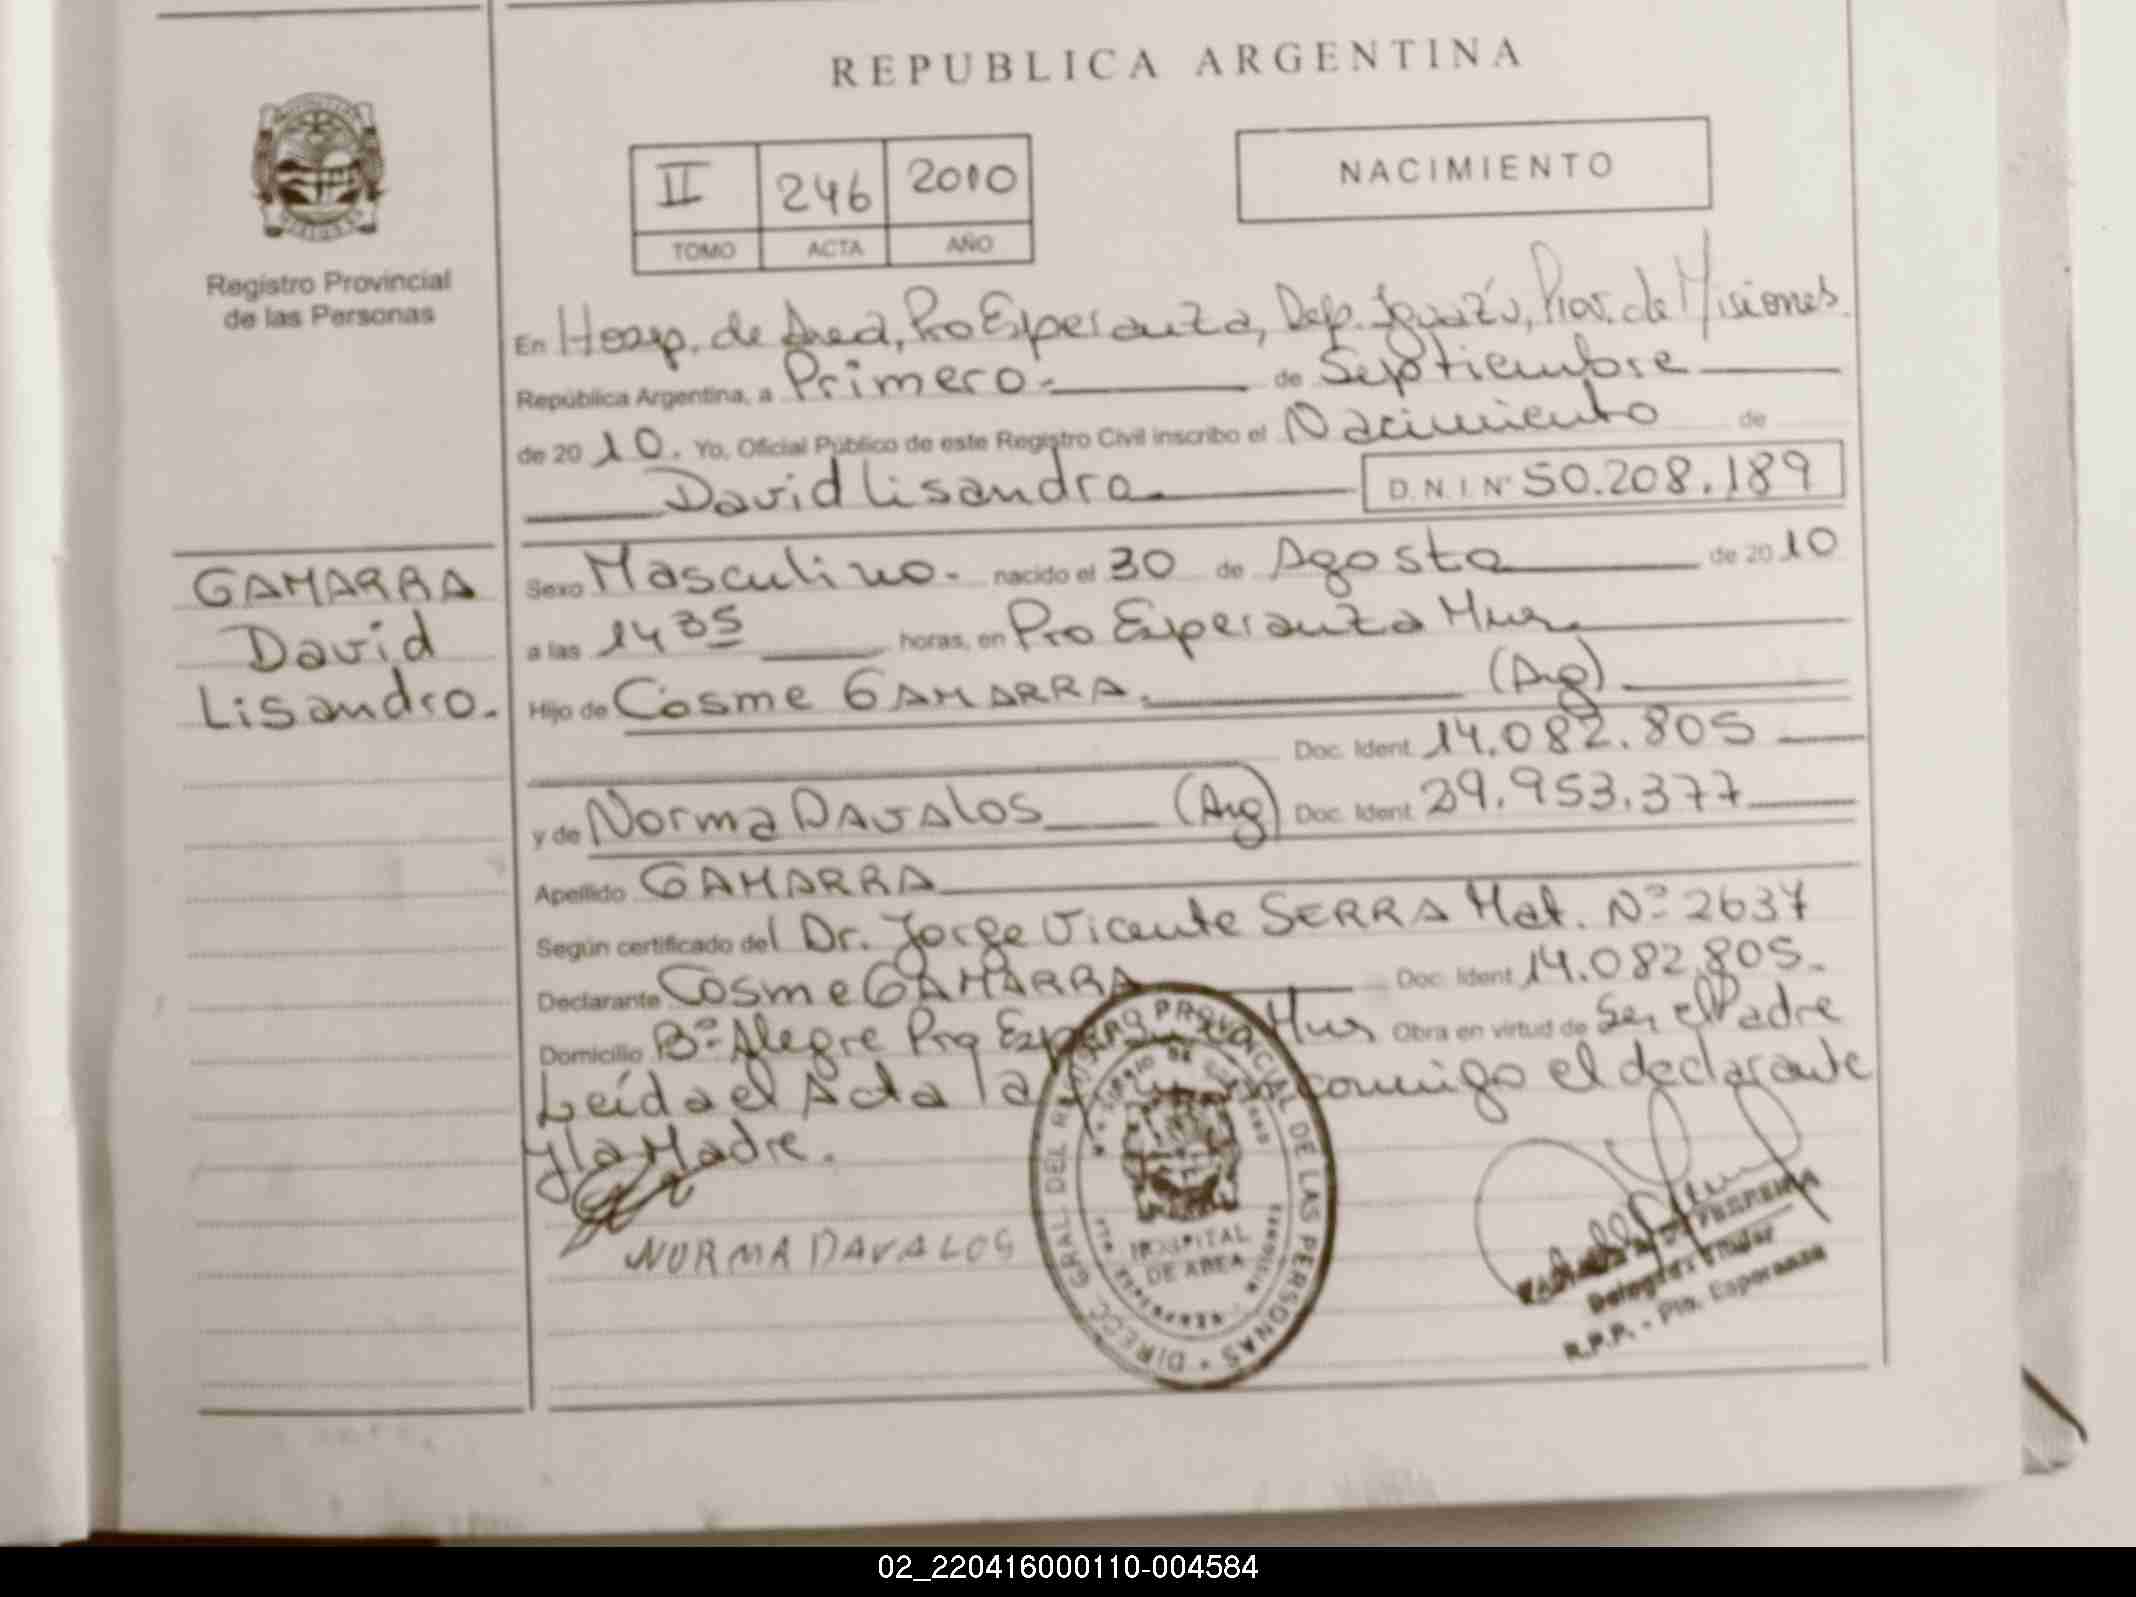 REPUBLICA ARGENTINA
NACIMIENTO
II 246 2010
TOMO ACTA AÑO
Registro Provincial
de las Personas
En Hosp. de Area, Pto Esperanza, Dep. Iguazú, Prov. de Misiones.
República Argentina, a Primero.- de Septiembre
de 2010. Yo, Oficial Público de este Registro Civil inscribo el Nacimiento de
David Lisandro. D.N.I. Nº 50.208.189
GAMARRA
David
Lisandro.
Sexo Masculino. nacido el 30 de Agosto de 2010
a las 14 35 horas, en Pto Esperanza Mnes.
Hijo de Cosme GAMARRA. (Arg)
Doc. Ident. 14.082.805
y de Norma DAVALOS (Arg) Doc. Ident. 29.953.377
Apellido GAMARRA
Según certificado del Dr. Jorge Vicente SERRA Mat. Nº 2637
Declarante Cosme GAMARRA Doc. Ident. 14.082.805.
Domicilio Bº Alegre Obra en virtud de Ser el Padre
Leída el Acta la conmigo el declarante
y la Madre.
NORMA DAVALOS
DIRECC. GRAL. DEL REGISTRO PROVINCIAL DE LAS PERSONAS
HOSPITAL
DE AREA
Delegada Titular
R.P.P. - Pto. Esperanza
02_220416000110-004584